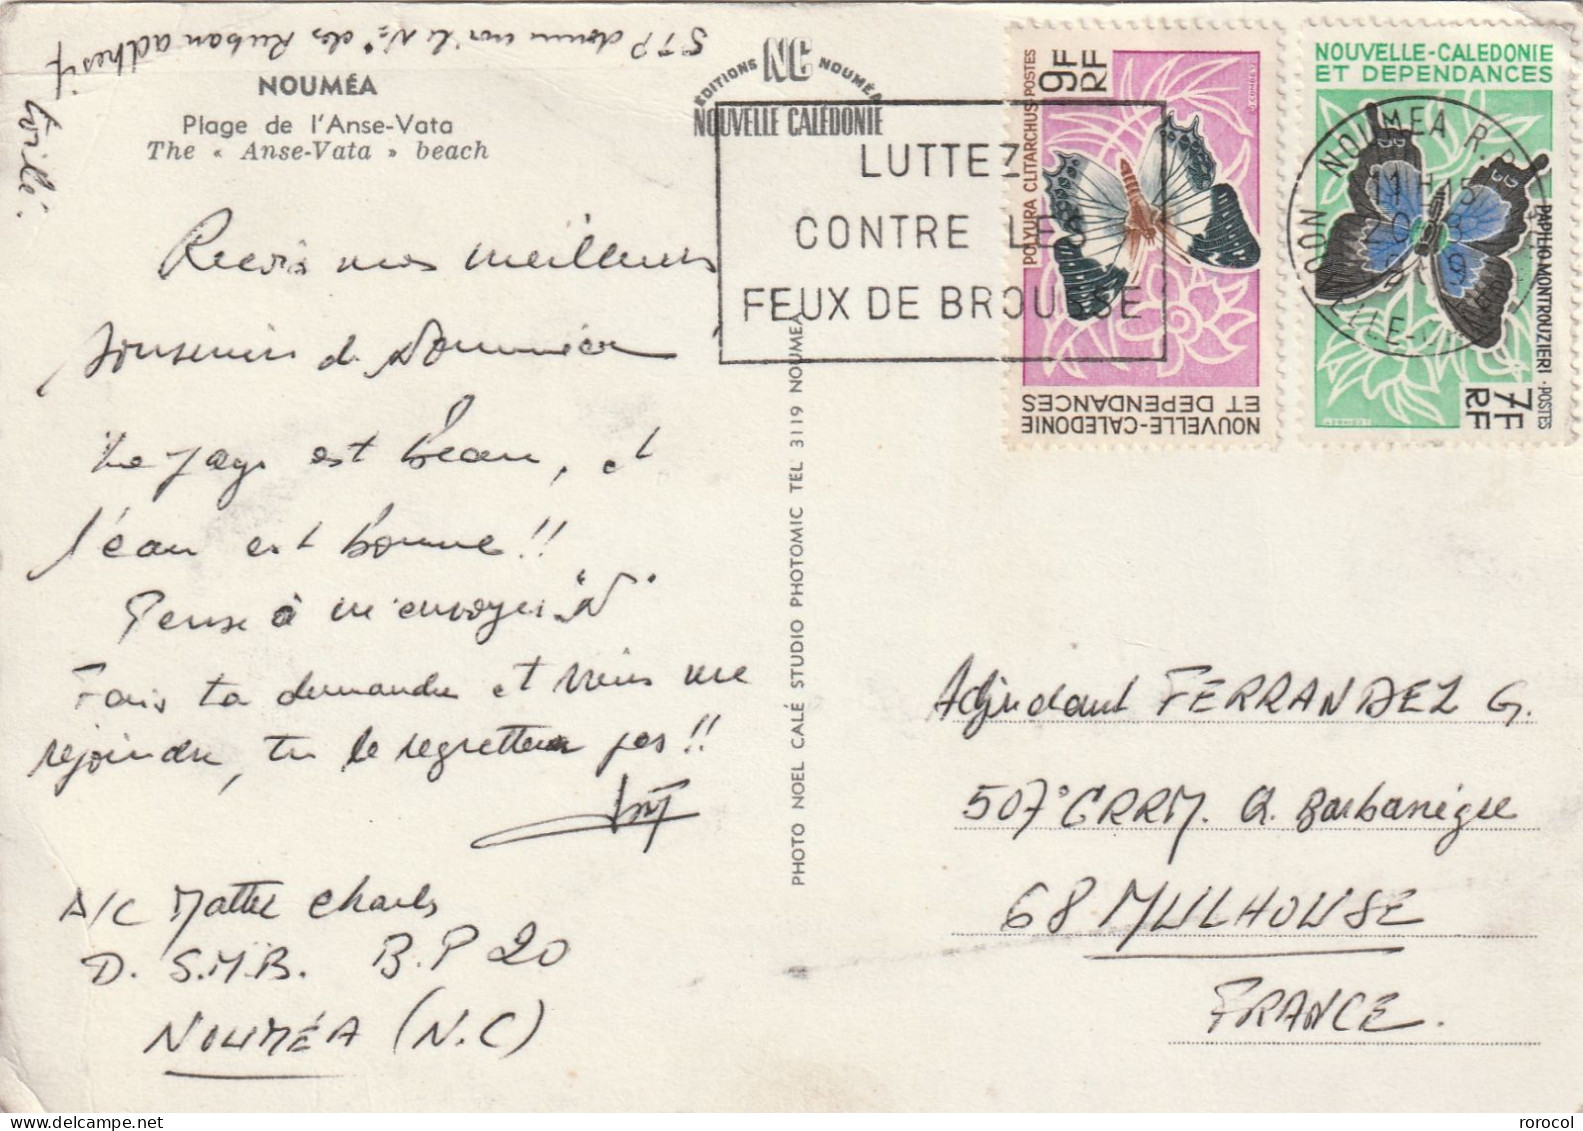 STP donne moi le N° des Ruban adhesif
NOUMÉA
Plage de l'Anse-Vata
The « Anse-Vata » beach
Reçois mes meilleurs
souvenirs de Nouméa
Le pays est beau, et
l'eau est bonne !!
Pense à m'envoyer "N"
Fais ta demande et viens me
rejoindre, tu le regrettera pas !!
A/C Mattei Charles
D. S.M.B. B.P 20
NOUMÉA (N.C)
EDITIONS NC NOUMÉA
NOUVELLE CALÉDONIE
PHOTO NOEL CALÉ STUDIO PHOTOMIC TEL 3119 NOUMEA
LUTTEZ
CONTRE LES
FEUX DE BROUSSE
9F
RF
POLYURA CLITARCHUS·POSTES
NOUVELLE-CALEDONIE
ET DEPENDANCES
NOUVELLE-CALEDONIE
ET DEPENDANCES
PAPILIO MONTROUZIERI · POSTES
7F
RF
NOUMEA R.P.
11H15
Adjudant FERRANDEZ G.
507° CRRM. Q. Barbanègre
68 MULHOUSE
FRANCE.
rorocol